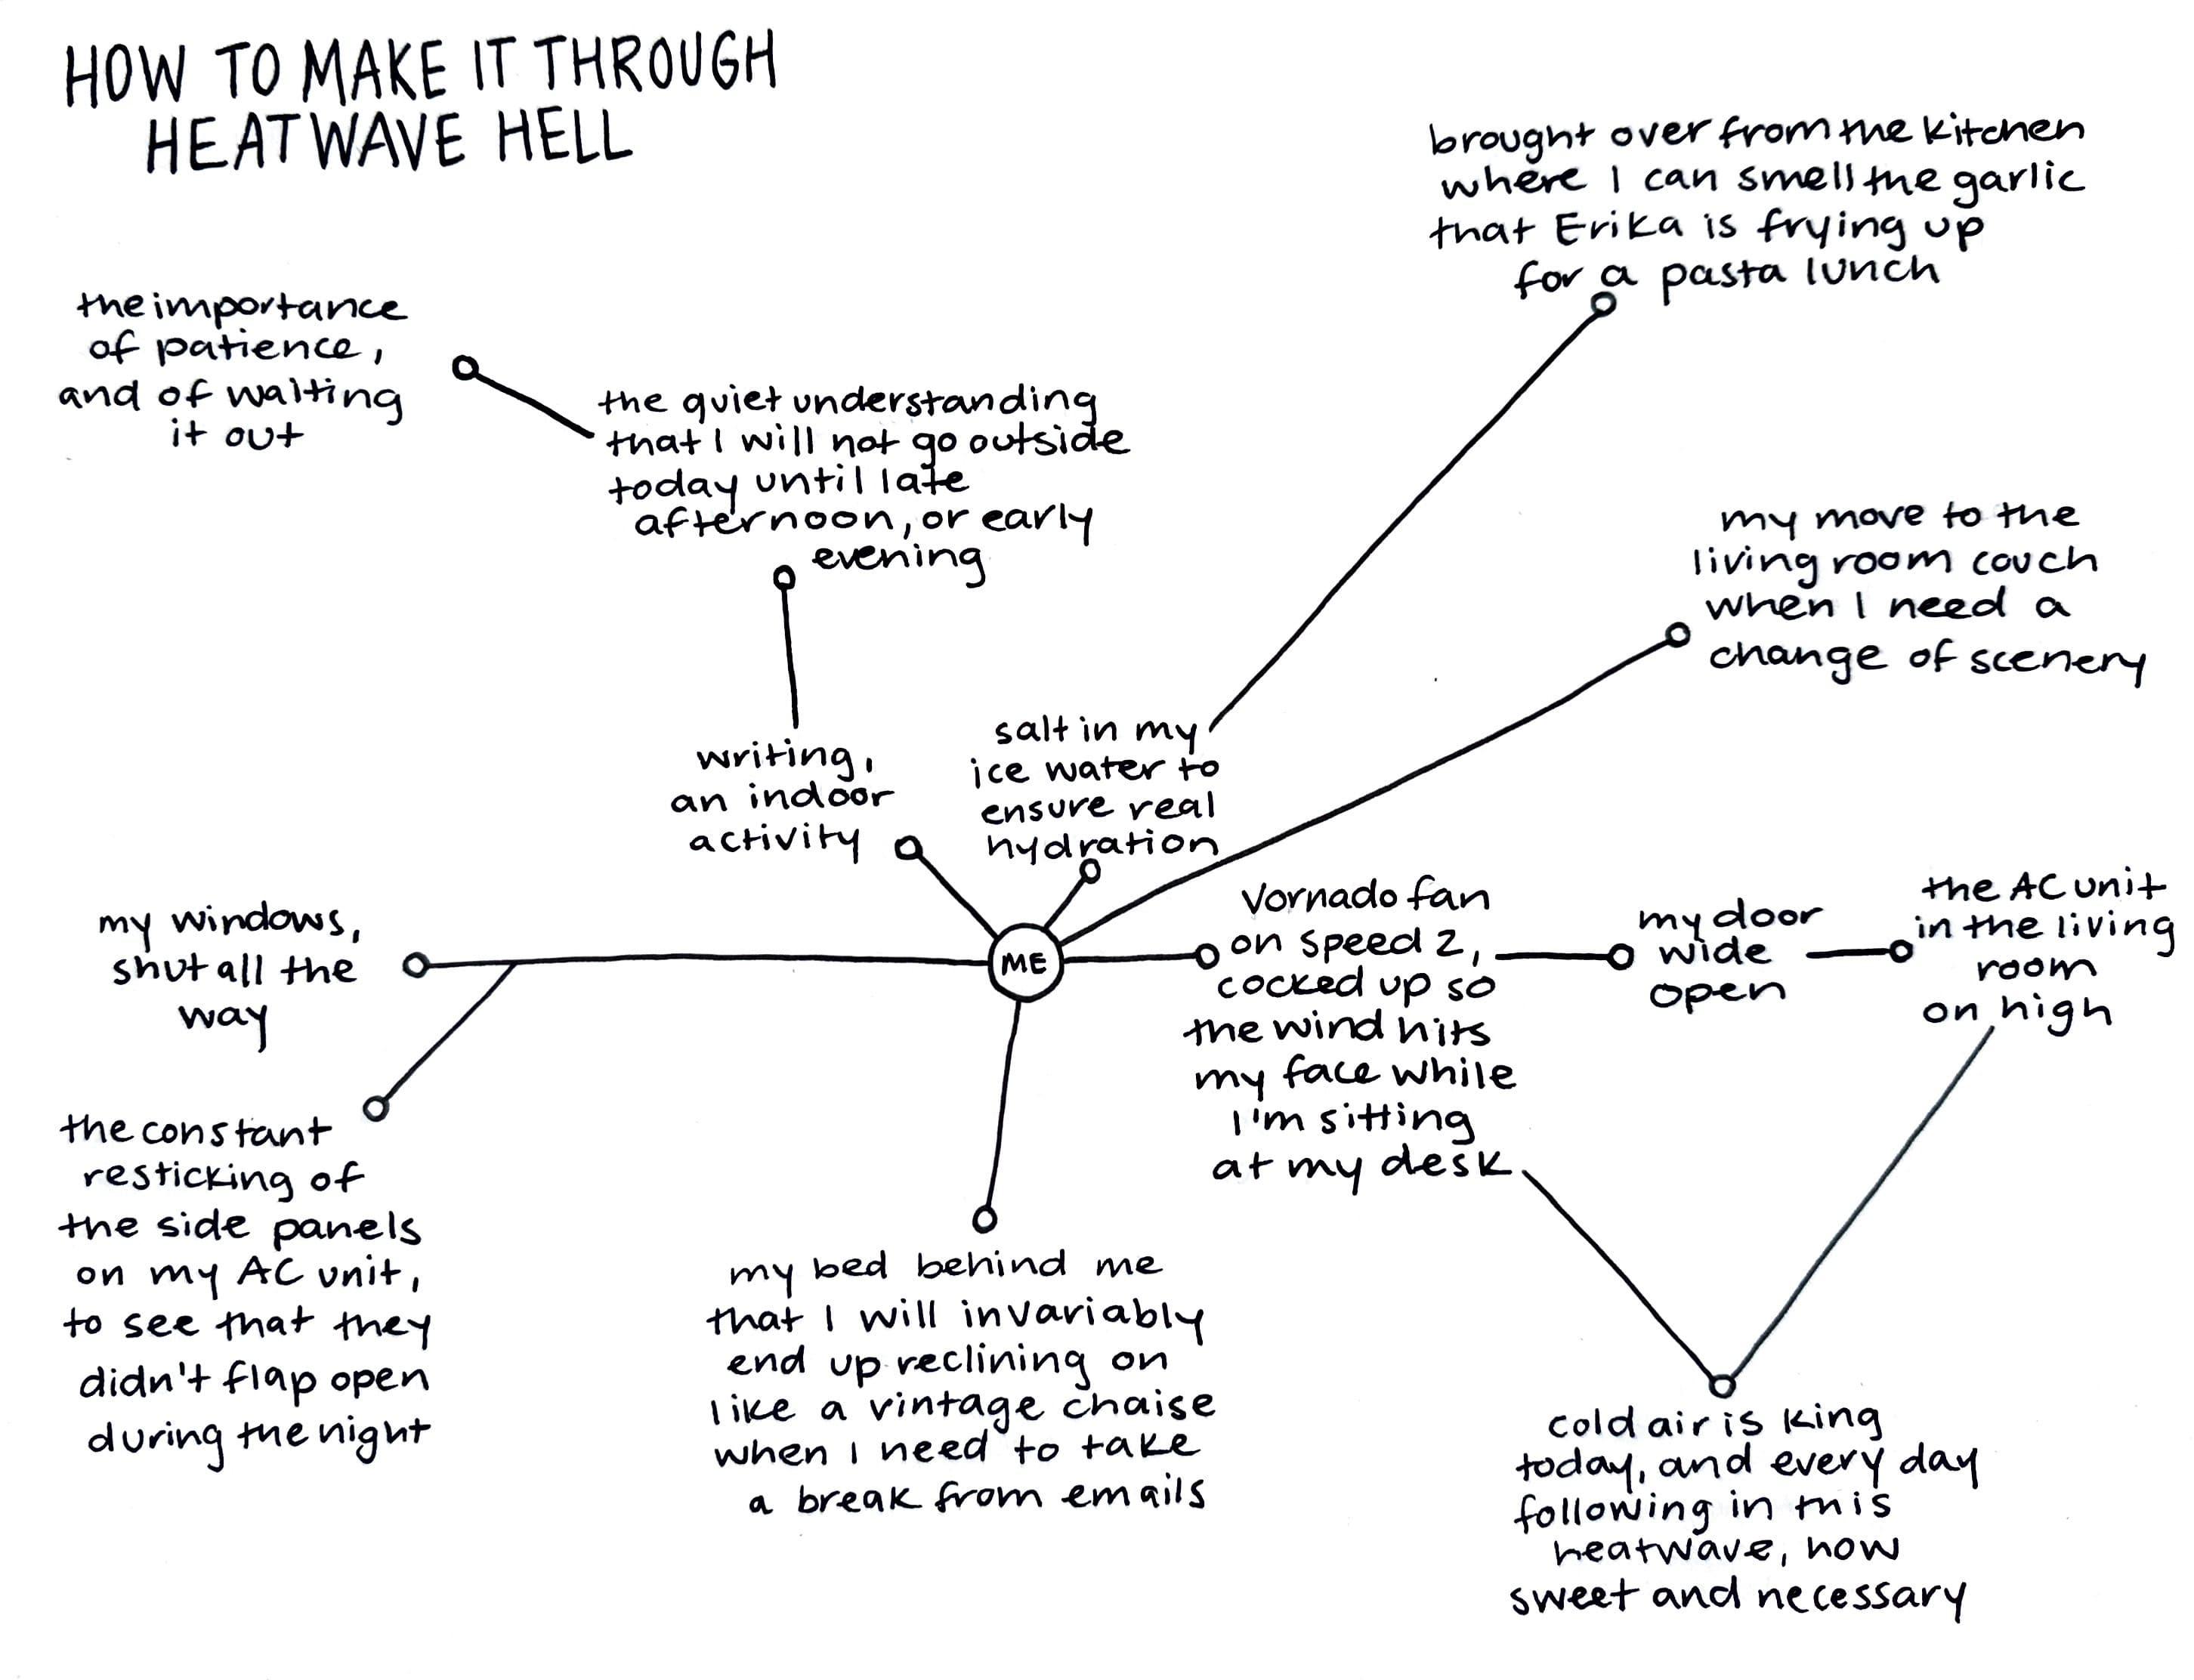 HOW TO MAKE IT THROUGH
HEATWAVE HELL
brought over from the kitchen
where I can smell the garlic
that Erika is frying up
for a pasta lunch
the importance
of patience,
and of waiting
it out
the quiet understanding
that I will not go outside
today until late
afternoon, or early
evening
my move to the
living room couch
when I need a
change of scenery
writing,
an indoor
activity
salt in my
ice water to
ensure real
hydration
my windows,
shut all the
way
ME
Vornado fan
on speed 2,
cocked up so
the wind hits
my face while
I'm sitting
at my desk
my door
wide
open
the AC unit
in the living
room
on high
the constant
resticking of
the side panels
on my AC unit,
to see that they
didn't flap open
during the night
my bed behind me
that I will invariably
end up reclining on
like a vintage chaise
when I need to take
a break from emails
cold air is king
today, and every day
following in this
heatwave, how
sweet and necessary